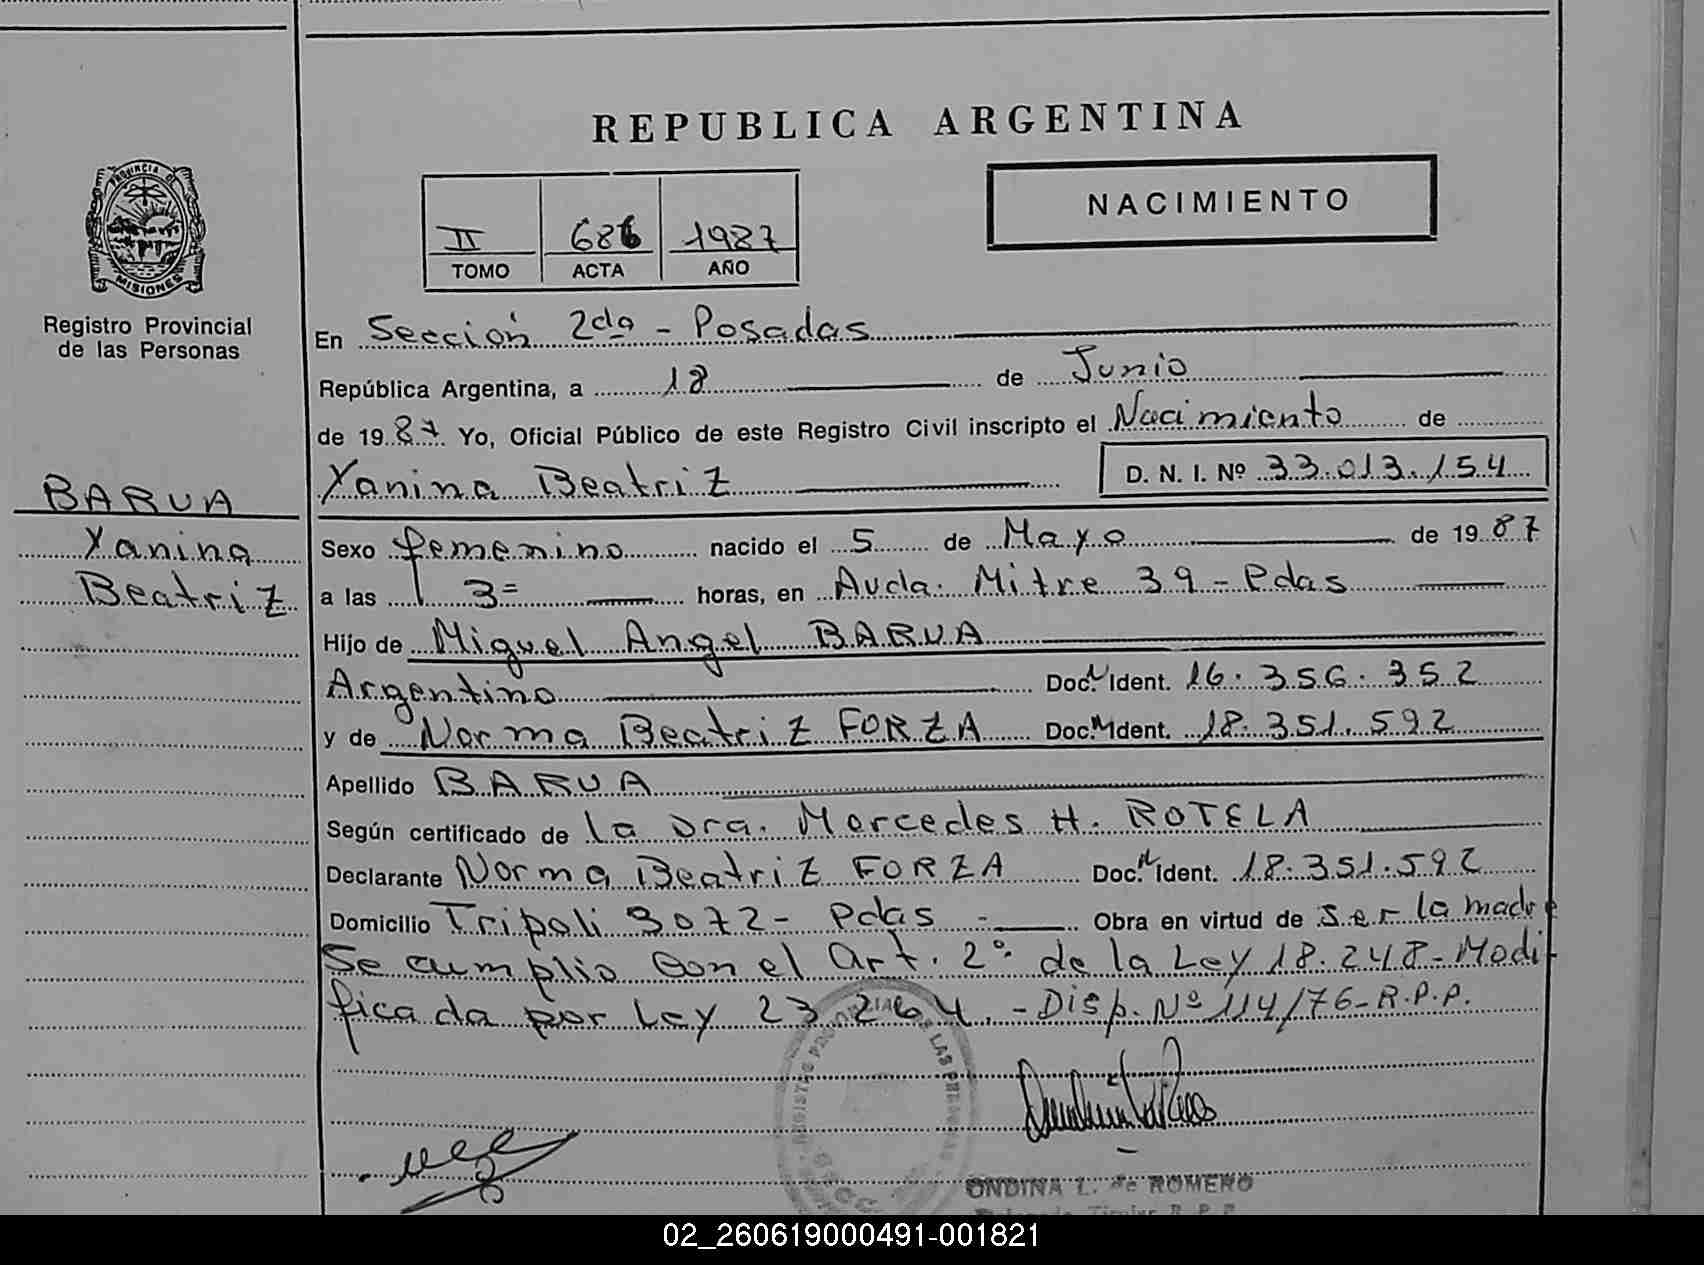 REPUBLICA ARGENTINA
PROVINCIA DE
MISIONES
Registro Provincial
de las Personas
II 686 1987
TOMO ACTA AÑO
NACIMIENTO
En Sección 2da - Posadas
República Argentina, a 18 de Junio
de 1987. Yo, Oficial Público de este Registro Civil inscripto el Nacimiento de
Yanina Beatriz D. N. I. Nº 33.013.154
BARUA
Yanina
Beatriz
Sexo femenino nacido el 5 de Mayo de 1987
a las 3= horas, en Avda. Mitre 39 - Pdas
Hijo de Miguel Angel BARUA
Argentino Doc. N Ident. 16.356.352
y de Norma Beatriz FORZA Doc. N Ident. 18.351.592
Apellido BARUA
Según certificado de la Dra. Mercedes H. ROTELA
Declarante Norma Beatriz FORZA Doc. N Ident. 18.351.592
Domicilio Tripoli 3072 - Pdas - Obra en virtud de ser la madre
Se cumplio con el art. 2º de la Ley 18.248 - Modi
ficada por Ley 23264. - Disp. Nº 114/76 - R.P.P.
REGISTRO PROVINCIAL DE LAS PERSONAS
ONDINA L. de ROMERO
R. P. P.
02_260619000491-001821